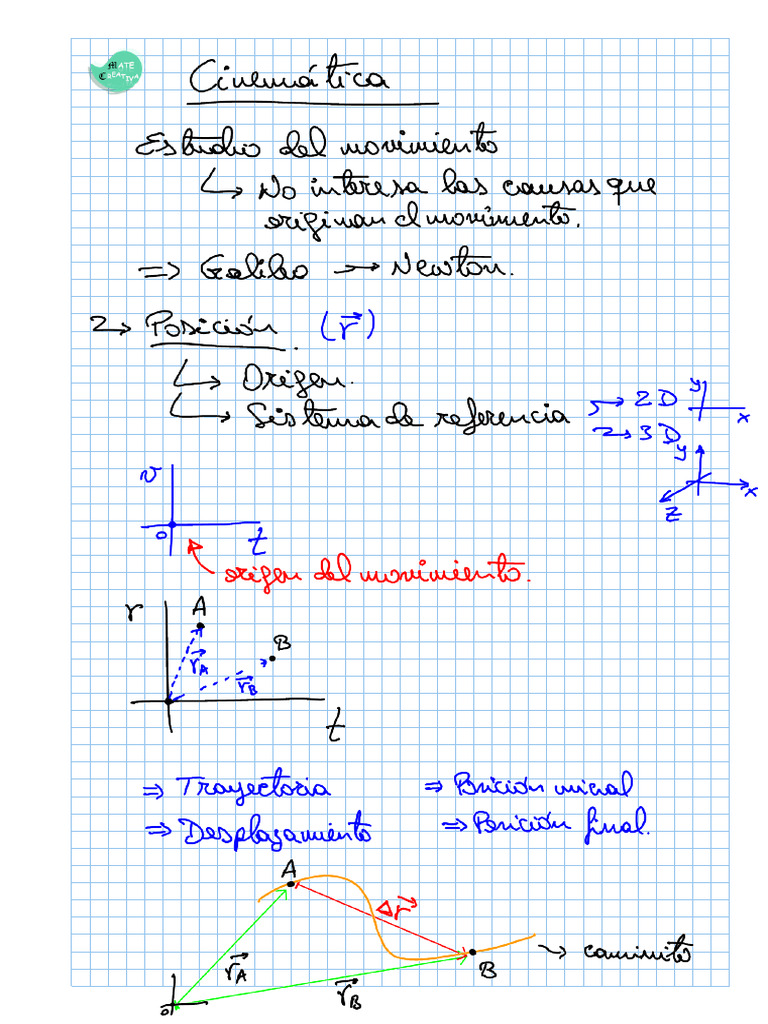 MATE
CREATIVA
Cinemática
Estudio del movimiento
↳ No interesa las causas que
originan el movimiento.
=> Galileo → Newton.
→ Posición (r⃗)
↳ Origen.
↳ Sistema de referencia
→ 2D y x
→ 3D y x z
v
0 t
origen del movimiento.
r A
B
r⃗A
r⃗B
t
=> Trayectoria => Posición inicial
=> Desplazamiento => Posición final.
A
Δr⃗
→ caminito
r⃗A B
r⃗B
0